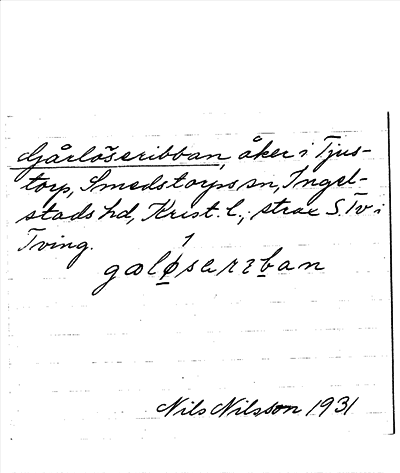 Gårlöseribban, åker i Tjus-
torp, Smedstorps sn, Ingel-
stads hd, Krist. l., strax S. Tv i
Tving.
1
galøsarɪban
Nils Nilsson 1931